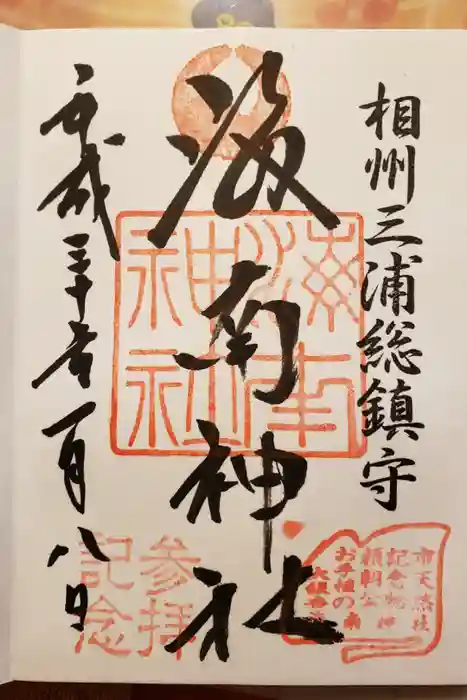 相州三浦総鎮守
海南神社
平成三十年一月八日
海南
神社
参拝
記念
市天然
記念物
頼朝公
お手植の
大銀杏